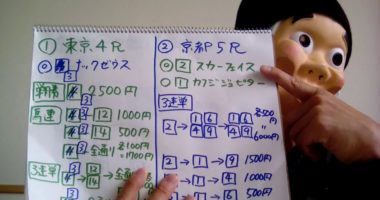 ① 東京4R
◎ 3 ナックゼウス
3 2500円
馬連 3 12 1000円
3 14 500円
3 全通り 各100円
=1700円
3連単 3 → 12 14 → 全通り
② 京都5R
◎ 2 スカーフェイス
○ 1 カヌヂジュピター
3連単
2 → 1 4 → 1 6 4 9 各500円
6000円
2 → 1 → 9 1500円
2 → 1 → 4 1000円
2 → 1 → 6 500円